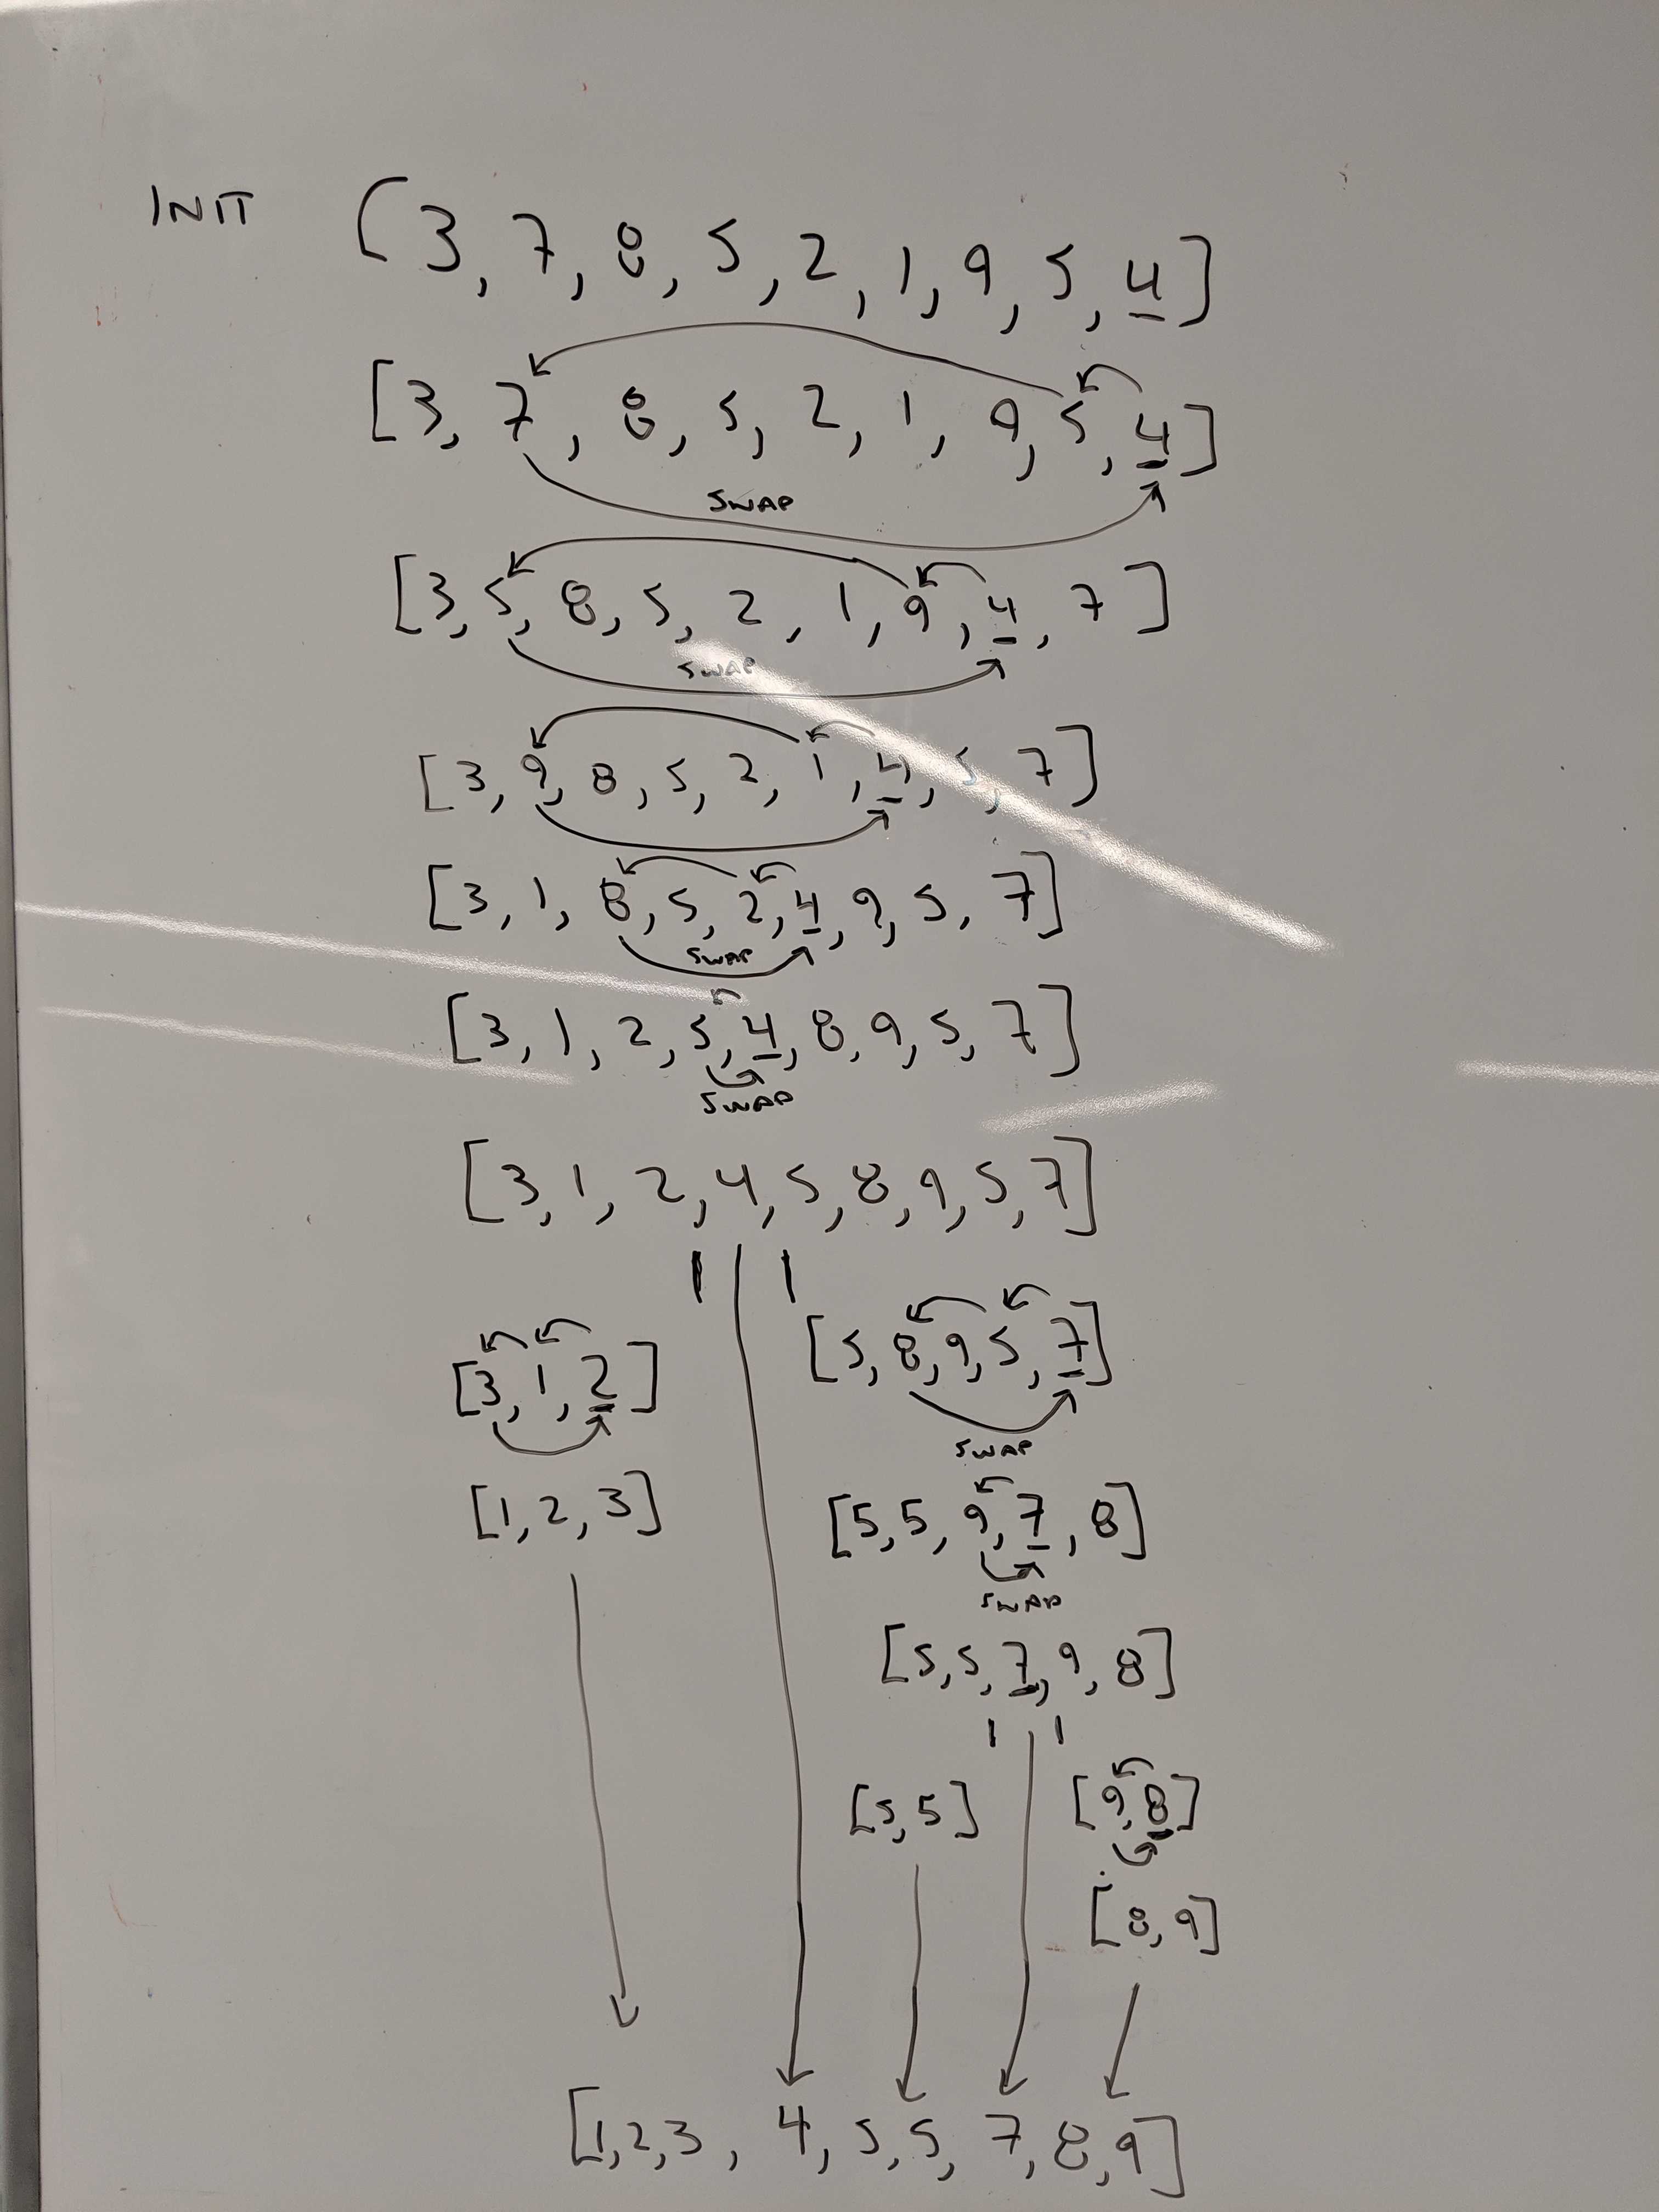 INIT (3, 7, 8, 5, 2, 1, 9, 5, 4]
[3, 7, 8, 5, 2, 1, 9, 5, 4]
SWAP
[3, 5, 8, 5, 2, 1, 9, 4, 7]
SWAP
[3, 9, 8, 5, 2, 1, 4, 5, 7]
[3, 1, 8, 5, 2, 4, 9, 5, 7]
SWAP
[3, 1, 2, 5, 4, 8, 9, 5, 7]
SWAP
[3, 1, 2, 4, 5, 8, 9, 5, 7]
[3, 1, 2] [5, 8, 9, 5, 7]
SWAP
[1, 2, 3] [5, 5, 9, 7, 8]
SWAP
[5, 5, 7, 9, 8]
[5, 5] [9, 8]
[8, 9]
[1, 2, 3, 4, 5, 5, 7, 8, 9]